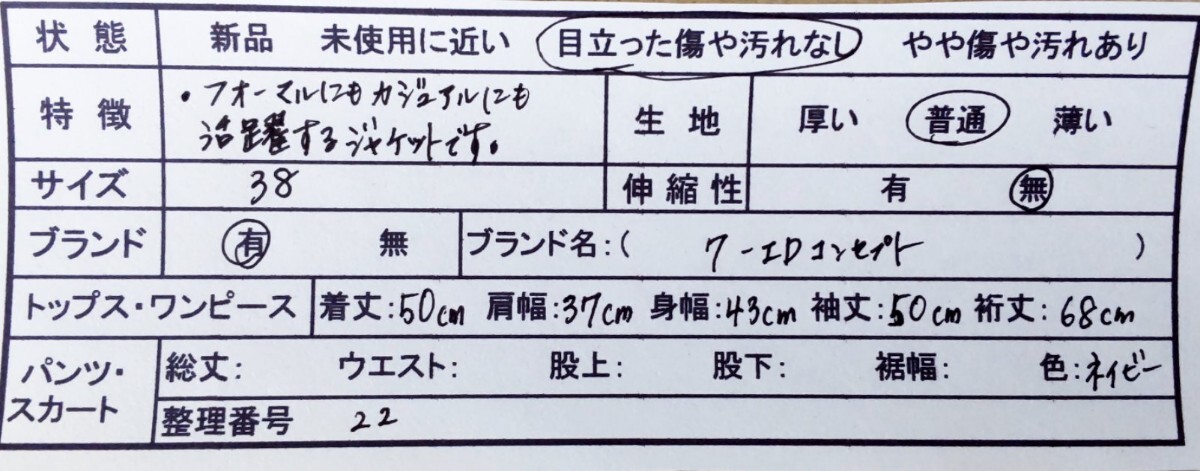 状態 新品 未使用に近い 目立った傷や汚れなし やや傷や汚れあり
特徴 ・フォーマルにもカジュアルにも
活躍するジャケットです。
生地 厚い 普通 薄い
サイズ 38 伸縮性 有 無
ブランド 有 無 ブランド名:( 7-IDコンセプト )
トップス・ワンピース 着丈:50cm 肩幅:37cm 身幅:43cm 袖丈:50cm 裄丈:68cm
パンツ・
スカート
総丈: ウエスト: 股上: 股下: 裾幅: 色:ネイビー
整理番号 22